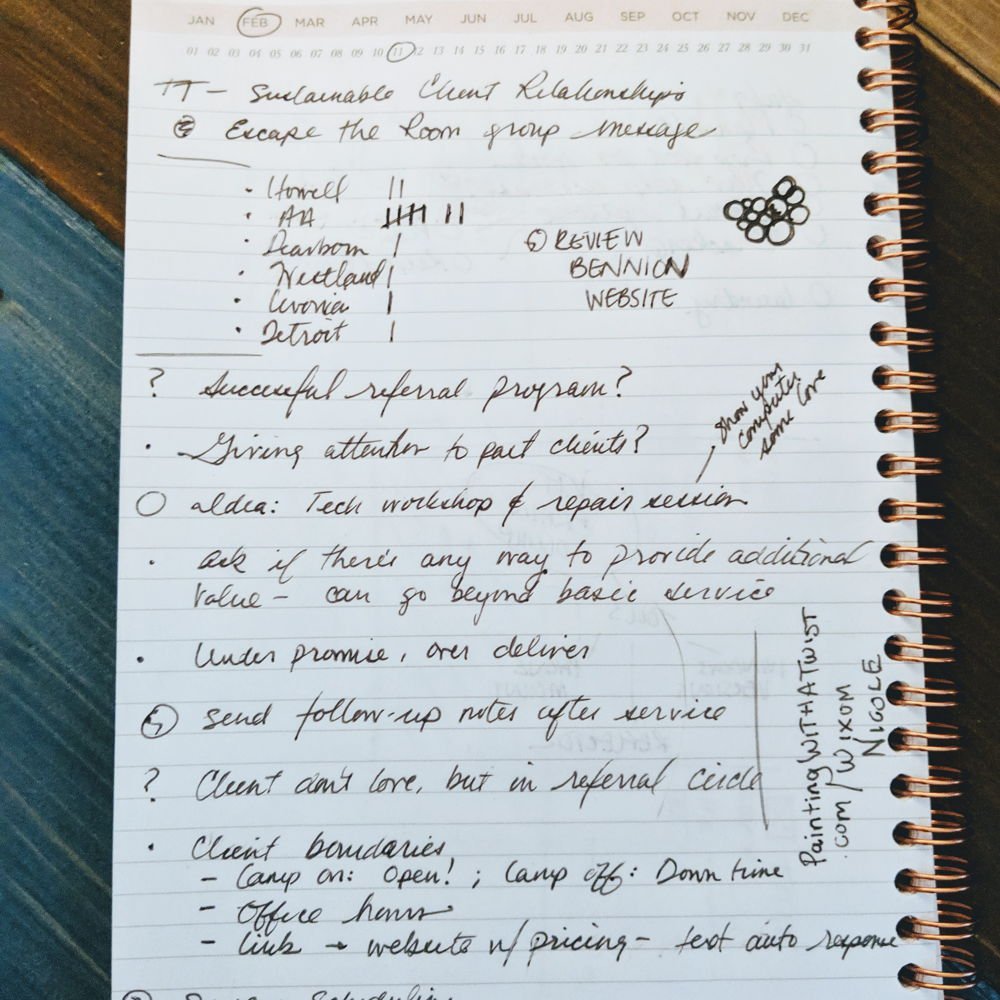 JAN FEB MAR APR MAY JUN JUL AUG SEP OCT NOV DEC
01 02 03 04 05 06 07 08 09 10 11 12 13 14 15 16 17 18 19 20 21 22 23 24 25 26 27 28 29 30 31
TT – Sustainable Client Relationships
Escape the Room group message
· Howell ||
· AA |||| ||
· Dearborn |
· Westland |
· Livonia |
· Detroit |
REVIEW
BENNION
WEBSITE
? Successful referral program?
show your
computer
some love
· Giving attention to past clients?
Idea: Tech workshop & repair session
· ask if there's any way to provide additional
value – can go beyond basic service
· Under promise, over deliver
Send follow-up notes after service
? Client don't love, but in referral circle
PaintingWITHATWIST
.com/WIXOM
NICOLE
· Client boundaries
– Lamp on: Open! ; Lamp off: Down time
– Office hours
– Link → website w/ pricing – text auto response
Scheduling